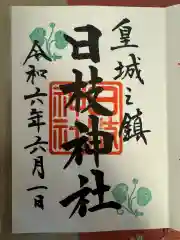 皇城之鎮
日枝神社
令和六年六月一日